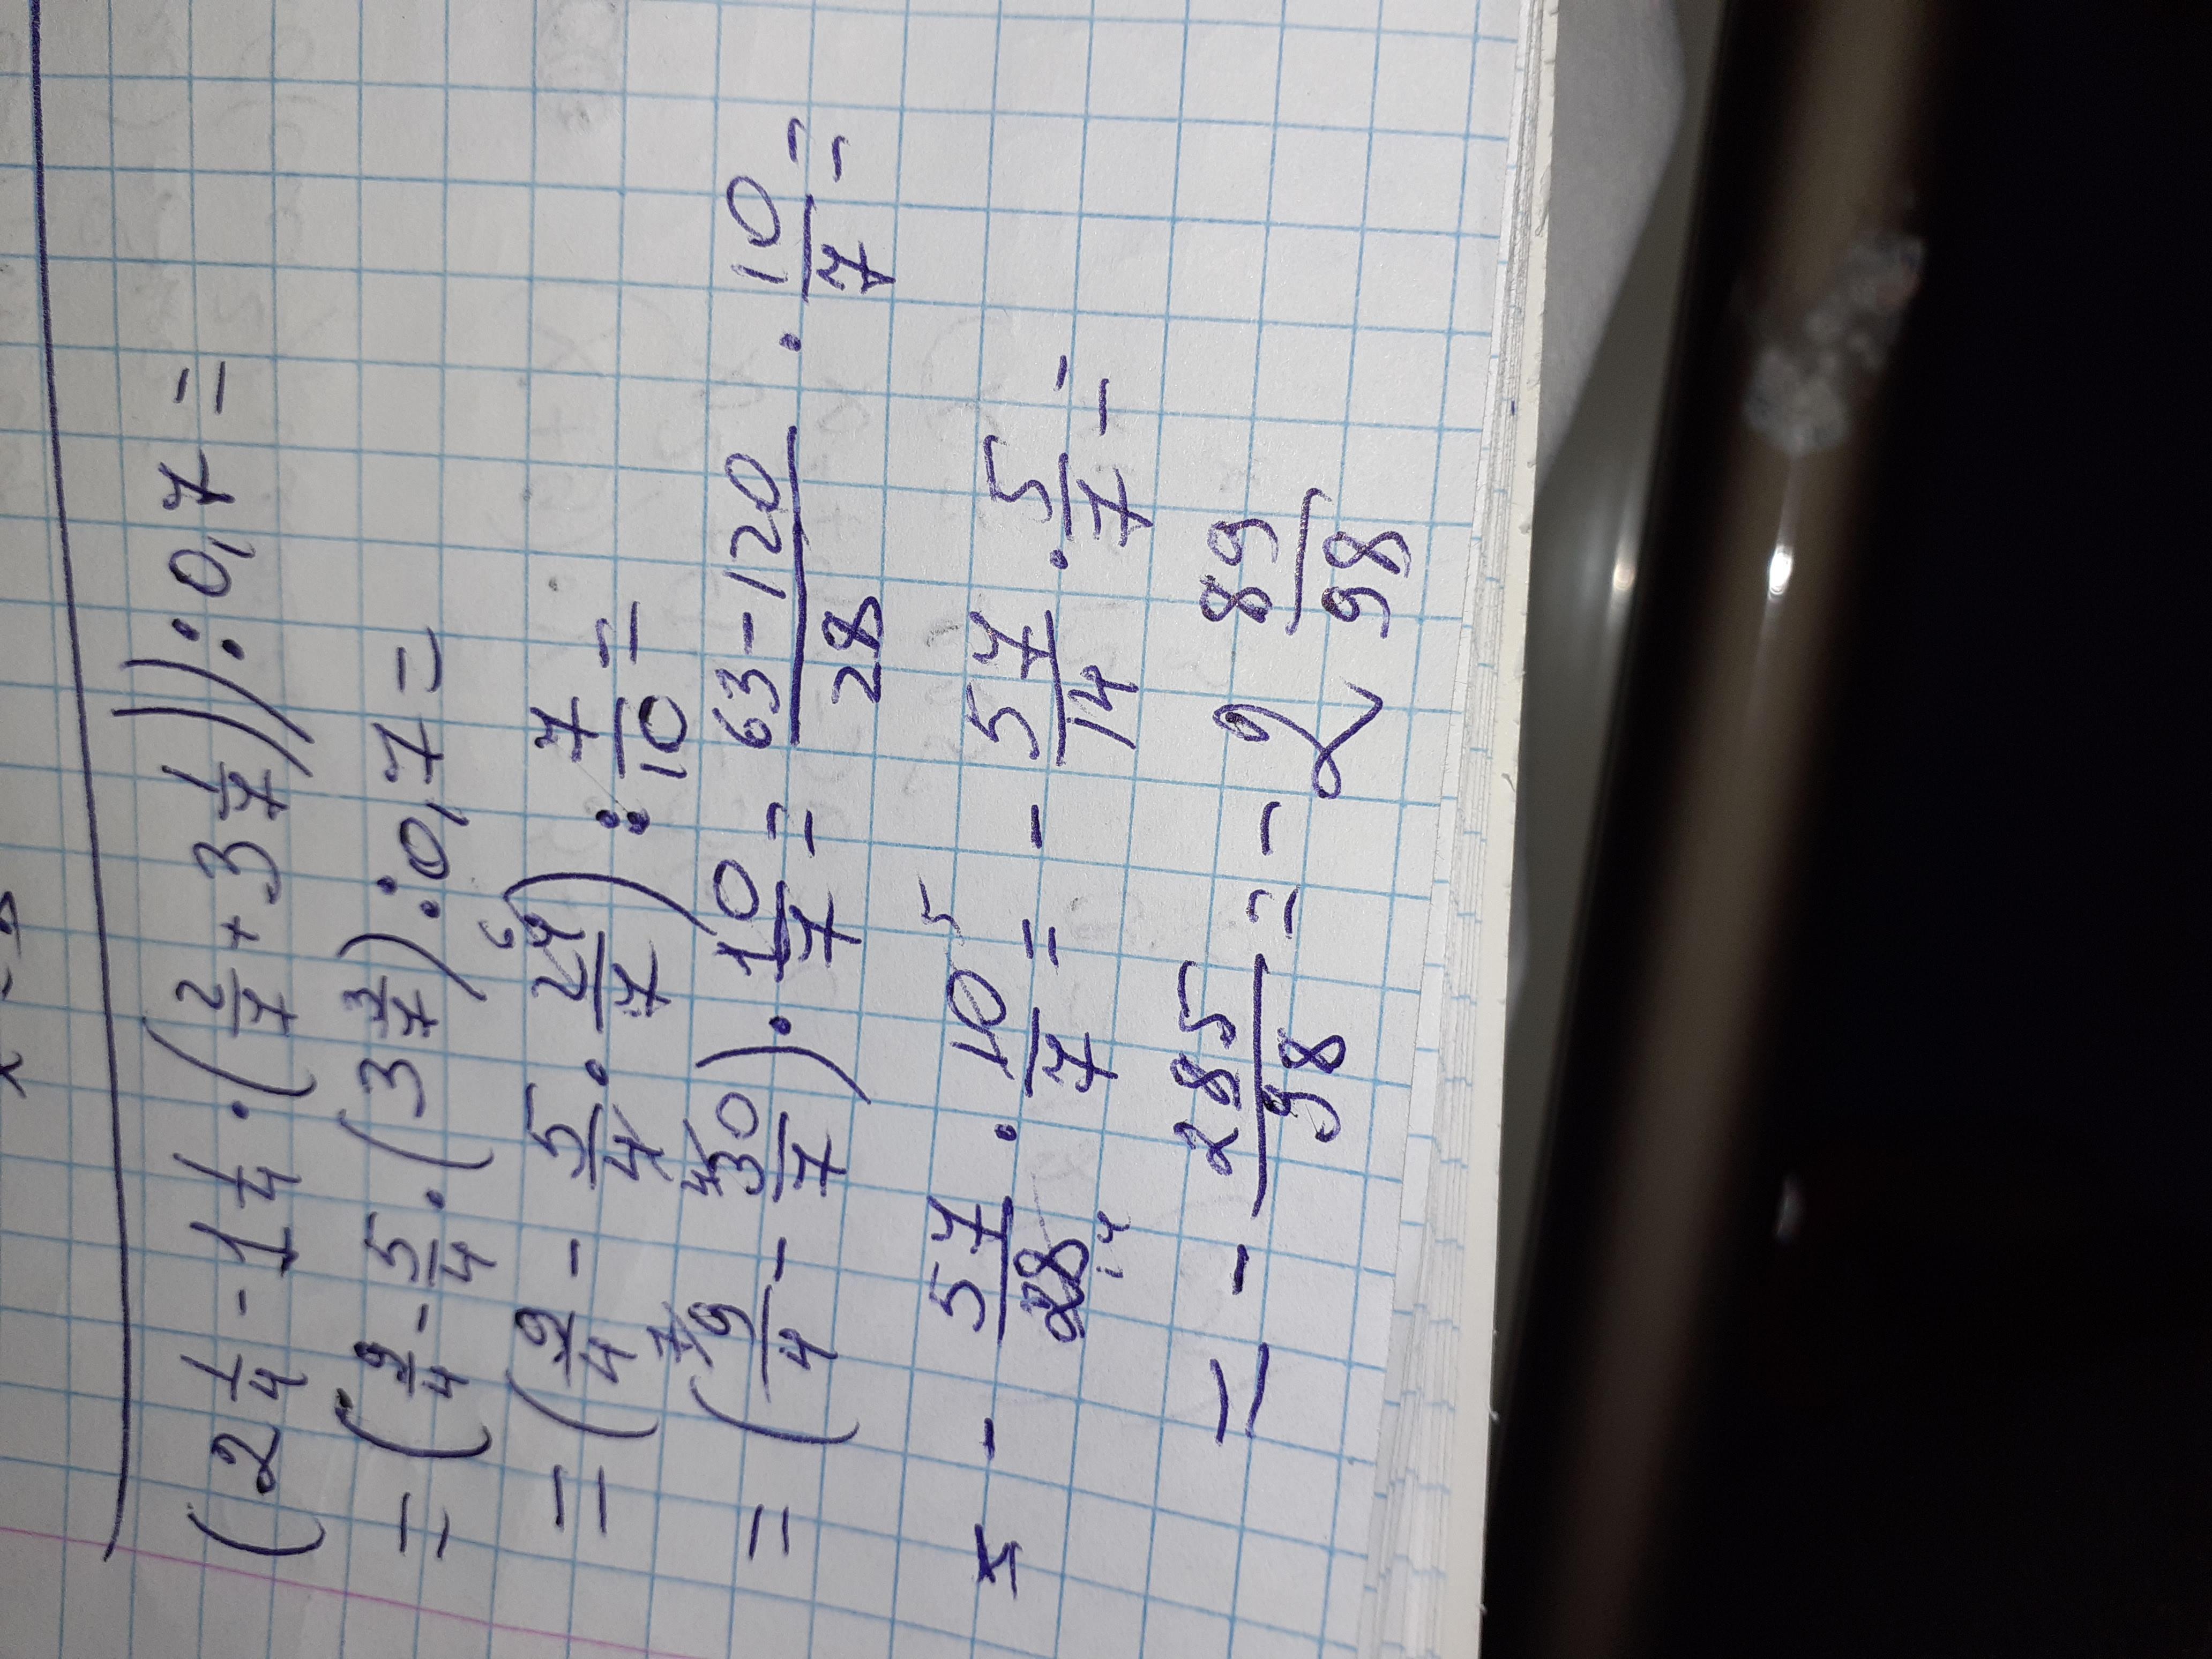 (2 1/4 - 1 1/4 · (2/7 + 3 1/7)) : 0,7 =
= (9/4 - 5/4 · (3 3/7) : 0,7 =
= (9/4 - 5/4 · 24/7) : 7/10 =
= (9/4 - 30/7) · 10/7 = 63-120/28 · 10/7 =
= - 57/28 · 10/7 = - 57/14 · 5/7 =
= - 285/98 = - 2 89/98